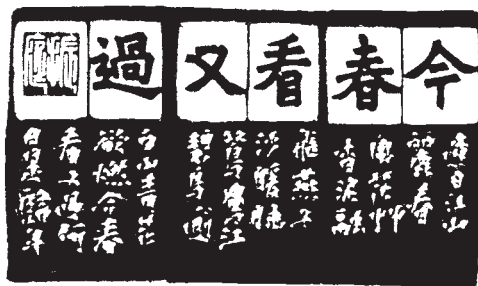 今春看又過
遲日江山
麗春
風花艸
香泥融
飛燕子
沙暖睡
鴛鴦江
碧鳥逾
白山青花
欲燃今春
看又過何
日是歸年